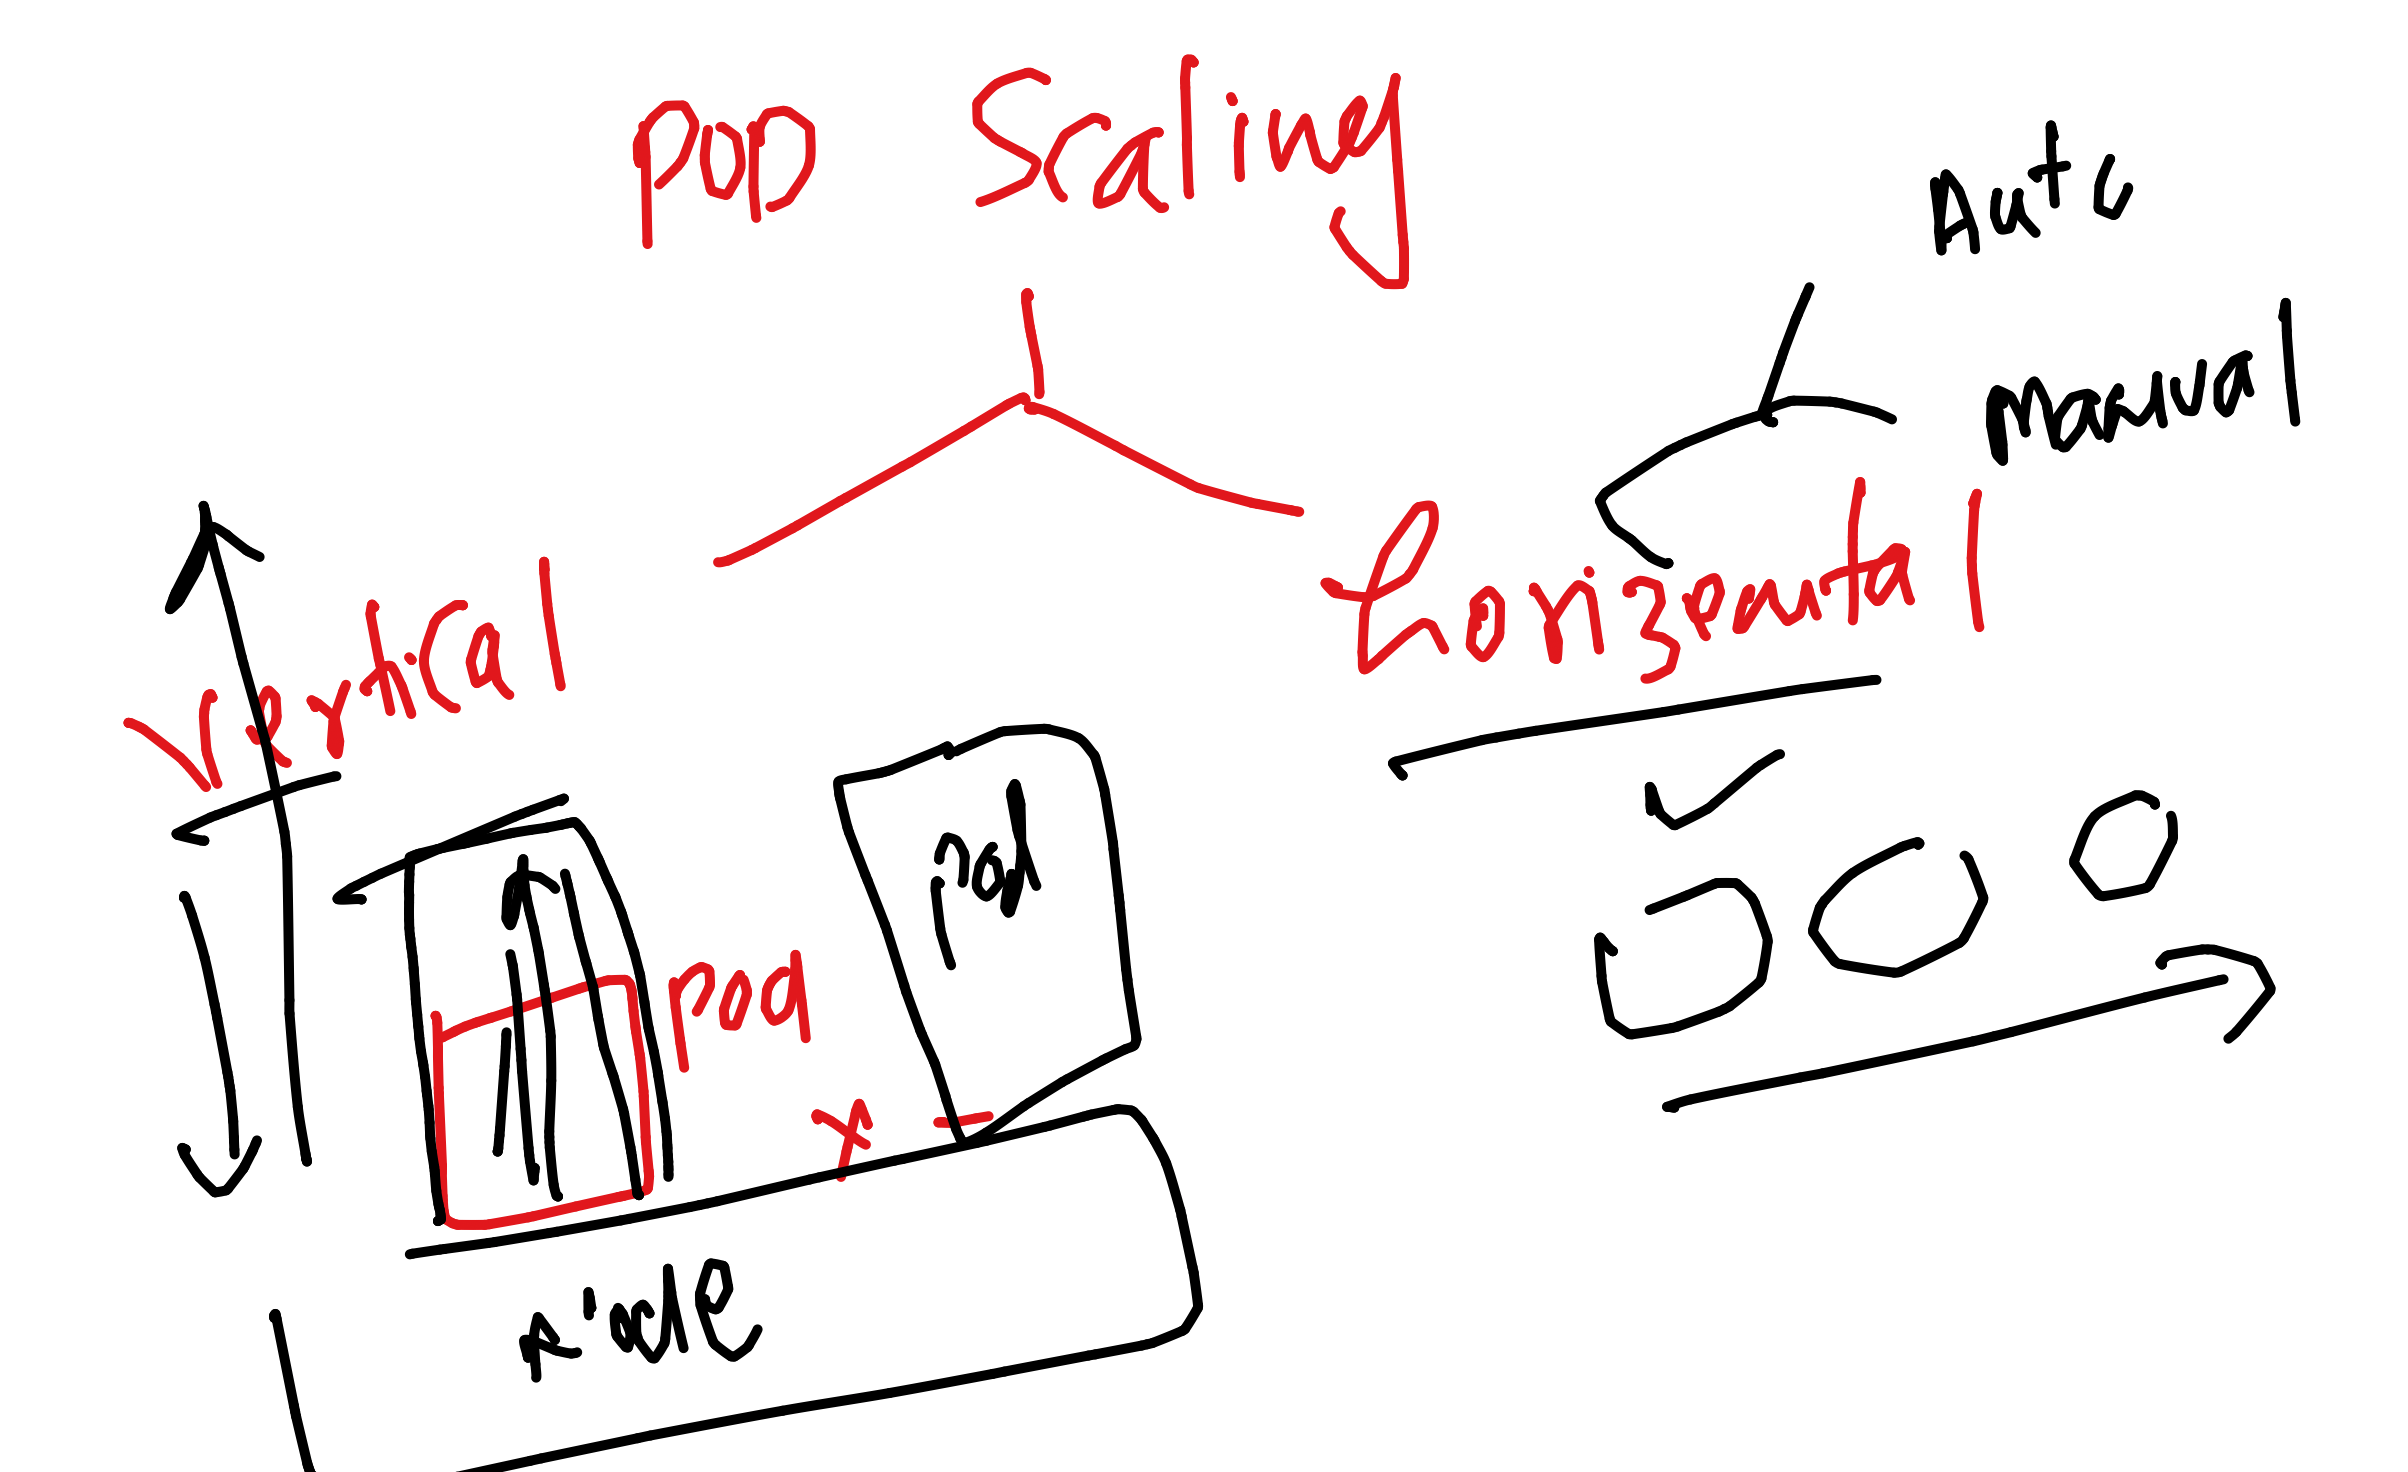 POD Scaling
Auto
Manual
Vertical
Horizental
Pod
Pod
X
Node